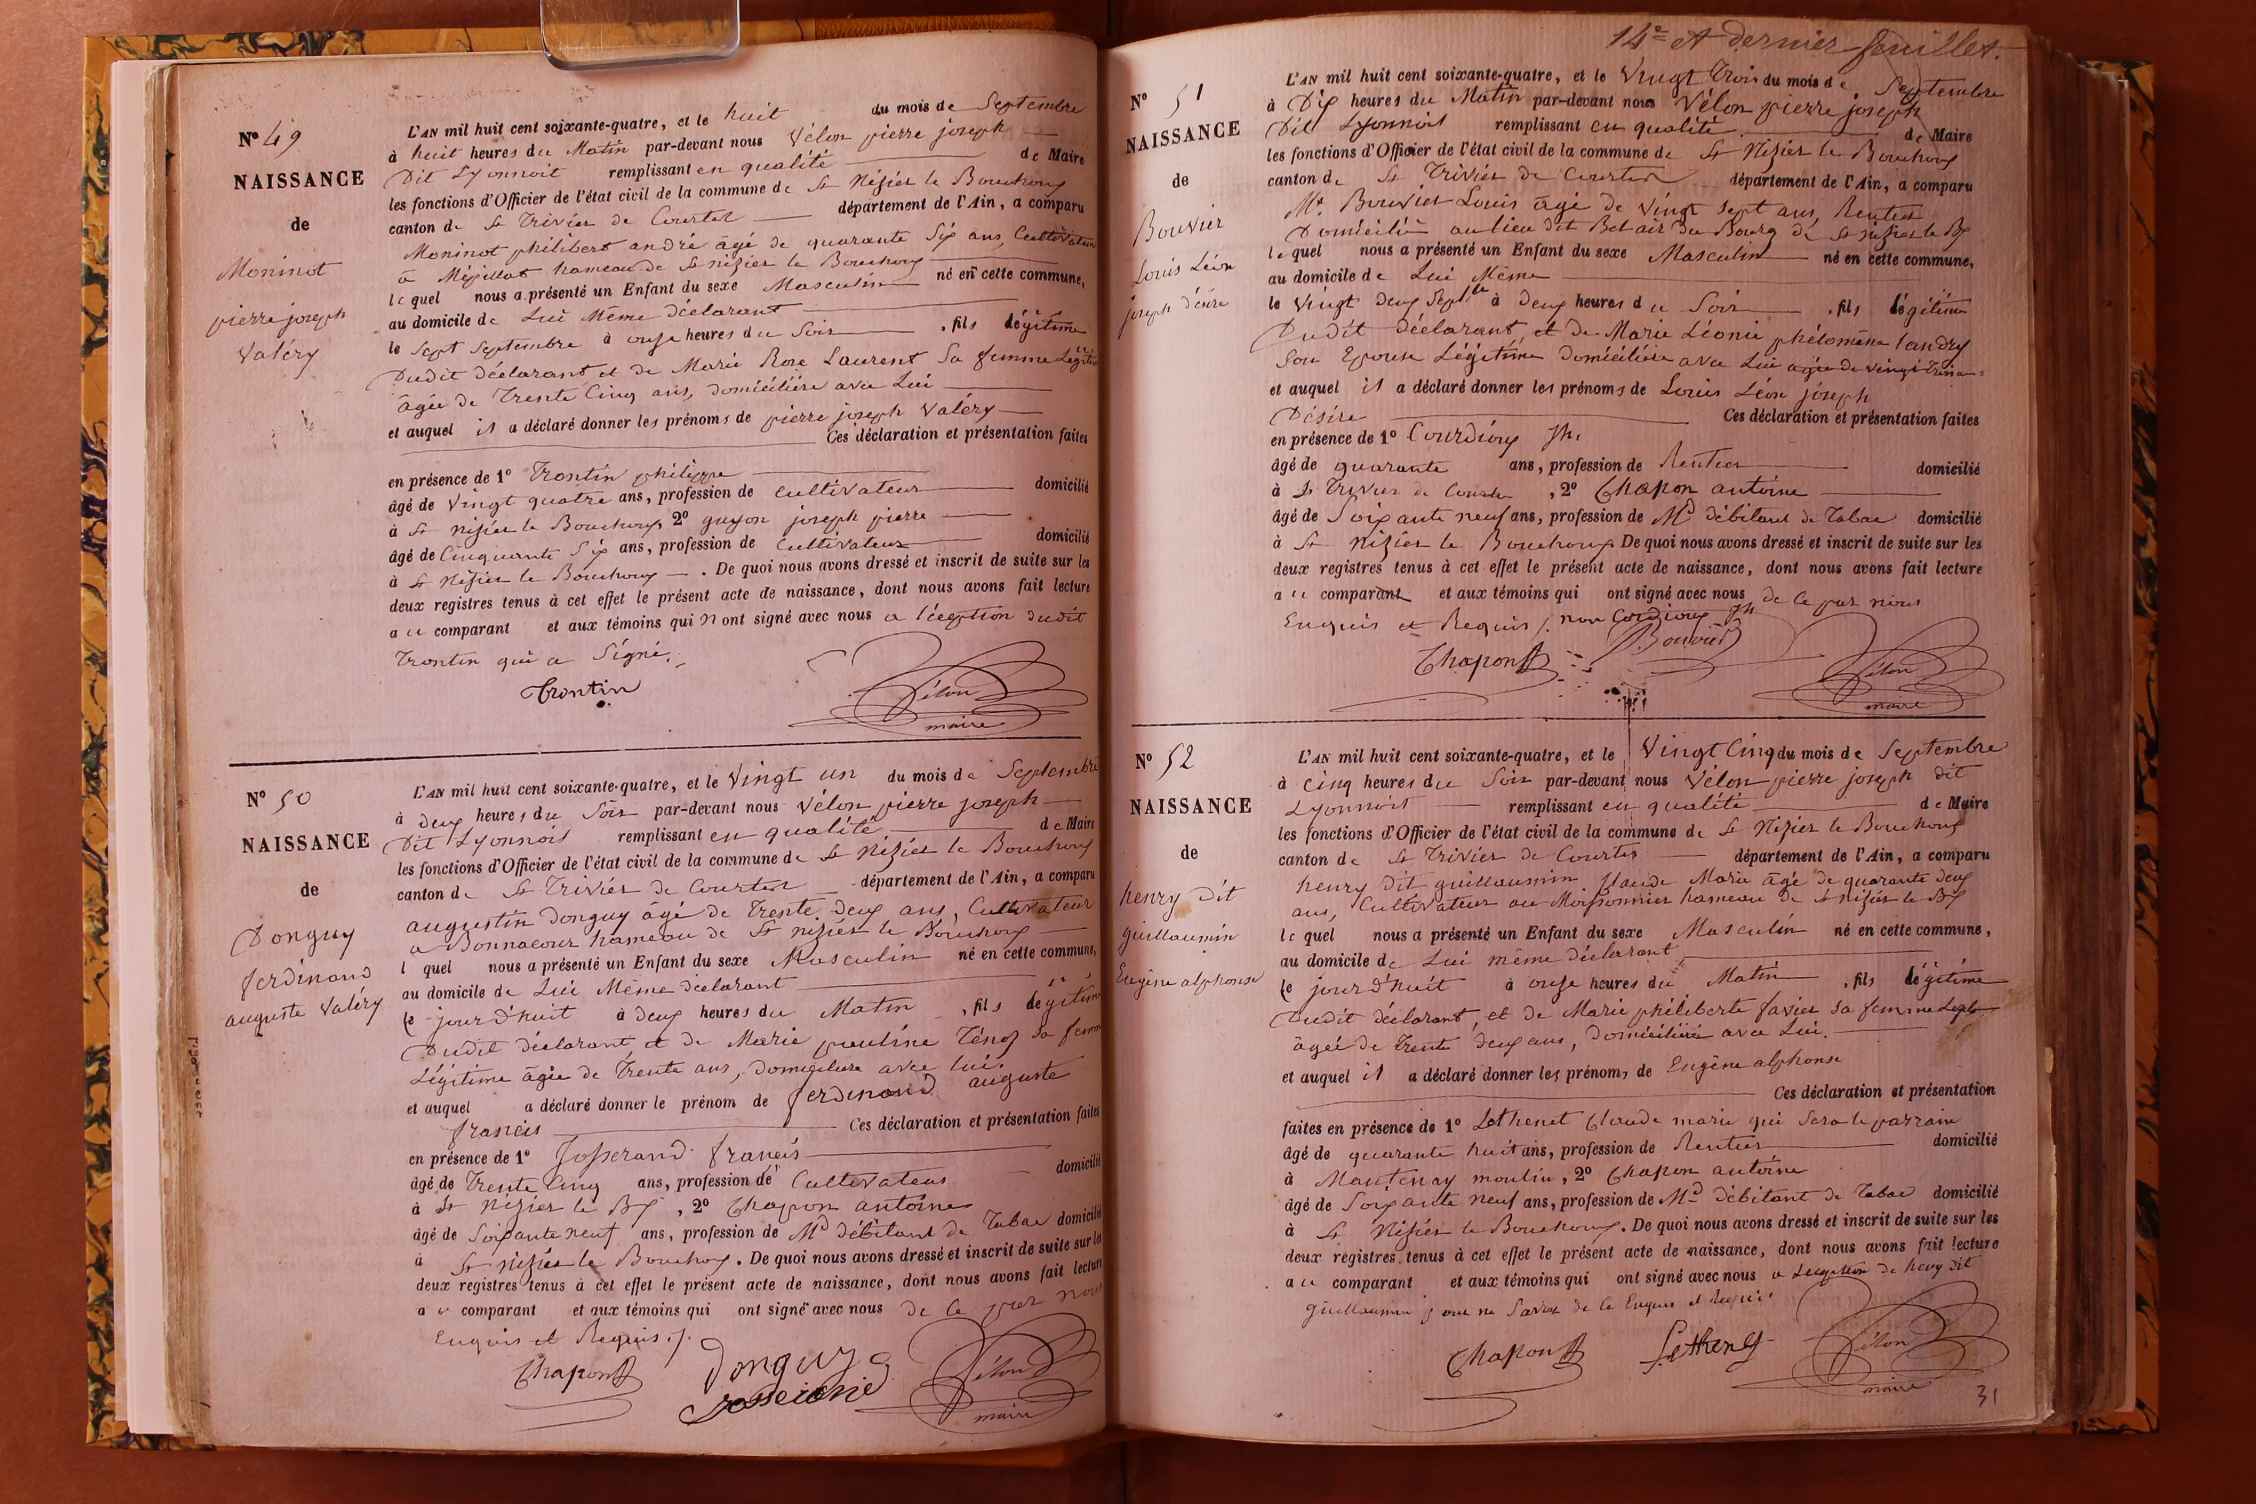 N° 49
NAISSANCE
de
Moninot
pierre joseph
Valéry
L'AN mil huit cent soixante-quatre, et le huit du mois de Septembre
à huit heures du Matin par-devant nous Vélon pierre joseph
Dit Lyonnois remplissant en qualité de Maire
les fonctions d'Officier de l'état civil de la commune de St Nizier le Bouchoux
canton de St Trivier de Courtes département de l'Ain, a comparu
Moninot philibert andré âgé de quarante Six ans, Cultivateur
à Mézillat hameau de St nizier le Bouchoux
lequel nous a présenté un Enfant du sexe Masculin né en cette commune,
au domicile de Lui Même déclarant
le Sept Septembre à onze heures du Soir , fils légitime
Dudit déclarant et de Marie Rose Laurent Sa femme Légitime
âgée de Trente Cinq ans, domiciliée avec Lui
et auquel il a déclaré donner les prénoms de pierre joseph Valéry
Ces déclaration et présentation faites
en présence de 1° Trontin philippe
âgé de vingt quatre ans, profession de Cultivateur domicilié
à St nizier le Bouchoux 2° guyon joseph pierre
âgé de Cinquante Six ans, profession de Cultivateur domicilié
à St Nizier le Bouchoux . De quoi nous avons dressé et inscrit de suite sur les
deux registres tenus à cet effet le présent acte de naissance, dont nous avons fait lecture
au comparant et aux témoins qui n ont signé avec nous a l'éception dudit
Trontin qui a Signé.
Trontin
Vélon
maire
N° 50
NAISSANCE
de
Donguy
ferdinand
auguste Valéry
L'AN mil huit cent soixante-quatre, et le Vingt un du mois de Septembre
à deux heures du Soir par-devant nous Vélon pierre joseph
Dit Lyonnois remplissant en qualité de Maire
les fonctions d'Officier de l'état civil de la commune de St Nizier le Bouchoux
canton de St Trivier de Courtes département de l'Ain, a comparu
augustin Donguy âgé de Trente deux ans, Cultivateur
a Bonnacour hameau de St nizier le Bouchoux
l quel nous a présenté un Enfant du sexe Masculin né en cette commune,
au domicile de Lui Même déclarant
le jour d'huit à deux heures du Matin , fils légitime
Dudit déclarant et de Marie pauline Sa femme
Légitime âgée de Trente ans, domiciliée avec lui.
et auquel a déclaré donner le prénom de ferdinand auguste
francis Ces déclaration et présentation faites
en présence de 1° Josserand francis
âgé de Trente Cinq ans, profession de Cultivateur domicilié
à St Nizier le Bx , 2° Chapon antoine
âgé de Soixante neuf ans, profession de Md débitant de Tabac domicilié
à St nizier le Bouchoux . De quoi nous avons dressé et inscrit de suite sur les
deux registres tenus à cet effet le présent acte de naissance, dont nous avons fait lecture
au comparant et aux témoins qui ont signé avec nous de ce par nous
Enquis et Requis ./.
Chapon
Donguy
Josserand
Vélon
maire
14e et dernier feuillet.
N° 51
NAISSANCE
de
Bouvier
Louis Léon
joseph désire
L'AN mil huit cent soixante-quatre, et le Vingt Trois du mois de Septembre
à Dix heures du Matin par-devant nous Vélon pierre joseph
Dit Lyonnois remplissant en qualité de Maire
les fonctions d'Officier de l'état civil de la commune de St Nizier le Bouchoux
canton de St Trivier de Courtes département de l'Ain, a comparu
Mr. Bouvier Louis âgé de Vingt Sept ans, Rentier
Domicilié au lieu dit Bel air du Bourg de St nizier le Bx
lequel nous a présenté un Enfant du sexe Masculin né en cette commune,
au domicile de Lui Même
le Vingt deux Septbre à deux heures du Soir , fils légitime
Dudit déclarant et de Marie Léonie philomène Landry
Son Epouse Légitime domiciliée avec Lui âgée de vingt Trois ans
et auquel il a déclaré donner les prénoms de Louis Léon joseph
Désire Ces déclaration et présentation faites
en présence de 1° Courdioux Jh.
âgé de quarante ans, profession de Rentier domicilié
à St Trivier de Courtes , 2° Chapon antoine
âgé de Soixante neuf ans, profession de Md débitant de Tabac domicilié
à St nizier le Bouchoux De quoi nous avons dressé et inscrit de suite sur les
deux registres tenus à cet effet le présent acte de naissance, dont nous avons fait lecture
au comparant et aux témoins qui ont signé avec nous de ce par nous
Enquis et Requis ./. non Cordioux Jh
Chapon
Bouvier
Vélon
maire
N° 52
NAISSANCE
de
henry dit
guillaumin
Eugène alphonse
L'AN mil huit cent soixante-quatre, et le Vingt Cinq du mois de Septembre
à Cinq heures du Soir par-devant nous Vélon pierre joseph dit
Lyonnois remplissant en qualité de Maire
les fonctions d'Officier de l'état civil de la commune de St Nizier le Bouchoux
canton de St Trivier de Courtes département de l'Ain, a comparu
henry dit guillaumin Claude Marie âgé de quarante deux
ans, Cultivateur au Moissonnier hameau de St nizier le Bx
lequel nous a présenté un Enfant du sexe Masculin né en cette commune,
au domicile de Lui même déclarant
le jour d'huit à onze heures du Matin , fils légitime
Dudit déclarant, et de Marie philiberte favier Sa femme Legte
âgée de Trente deux ans, domiciliée avec Lui.
et auquel il a déclaré donner les prénoms de Eugène alphonse
Ces déclaration et présentation
faites en présence de 1° Lethenet Claude marie qui Sera le parrain
âgé de quarante huit ans, profession de Rentier domicilié
à Mantenay moulin, 2° Chapon antoine
âgé de Soixante neuf ans, profession de Md débitant de Tabac domicilié
à St Nizier le Bouchoux. De quoi nous avons dressé et inscrit de suite sur les
deux registres tenus à cet effet le présent acte de naissance, dont nous avons fait lecture
au comparant et aux témoins qui ont signé avec nous a L'exception de henry dit
guillaumin pour ne Savoir de ce Enquis et Requis
Chapon
Lethenet
Vélon
maire
31